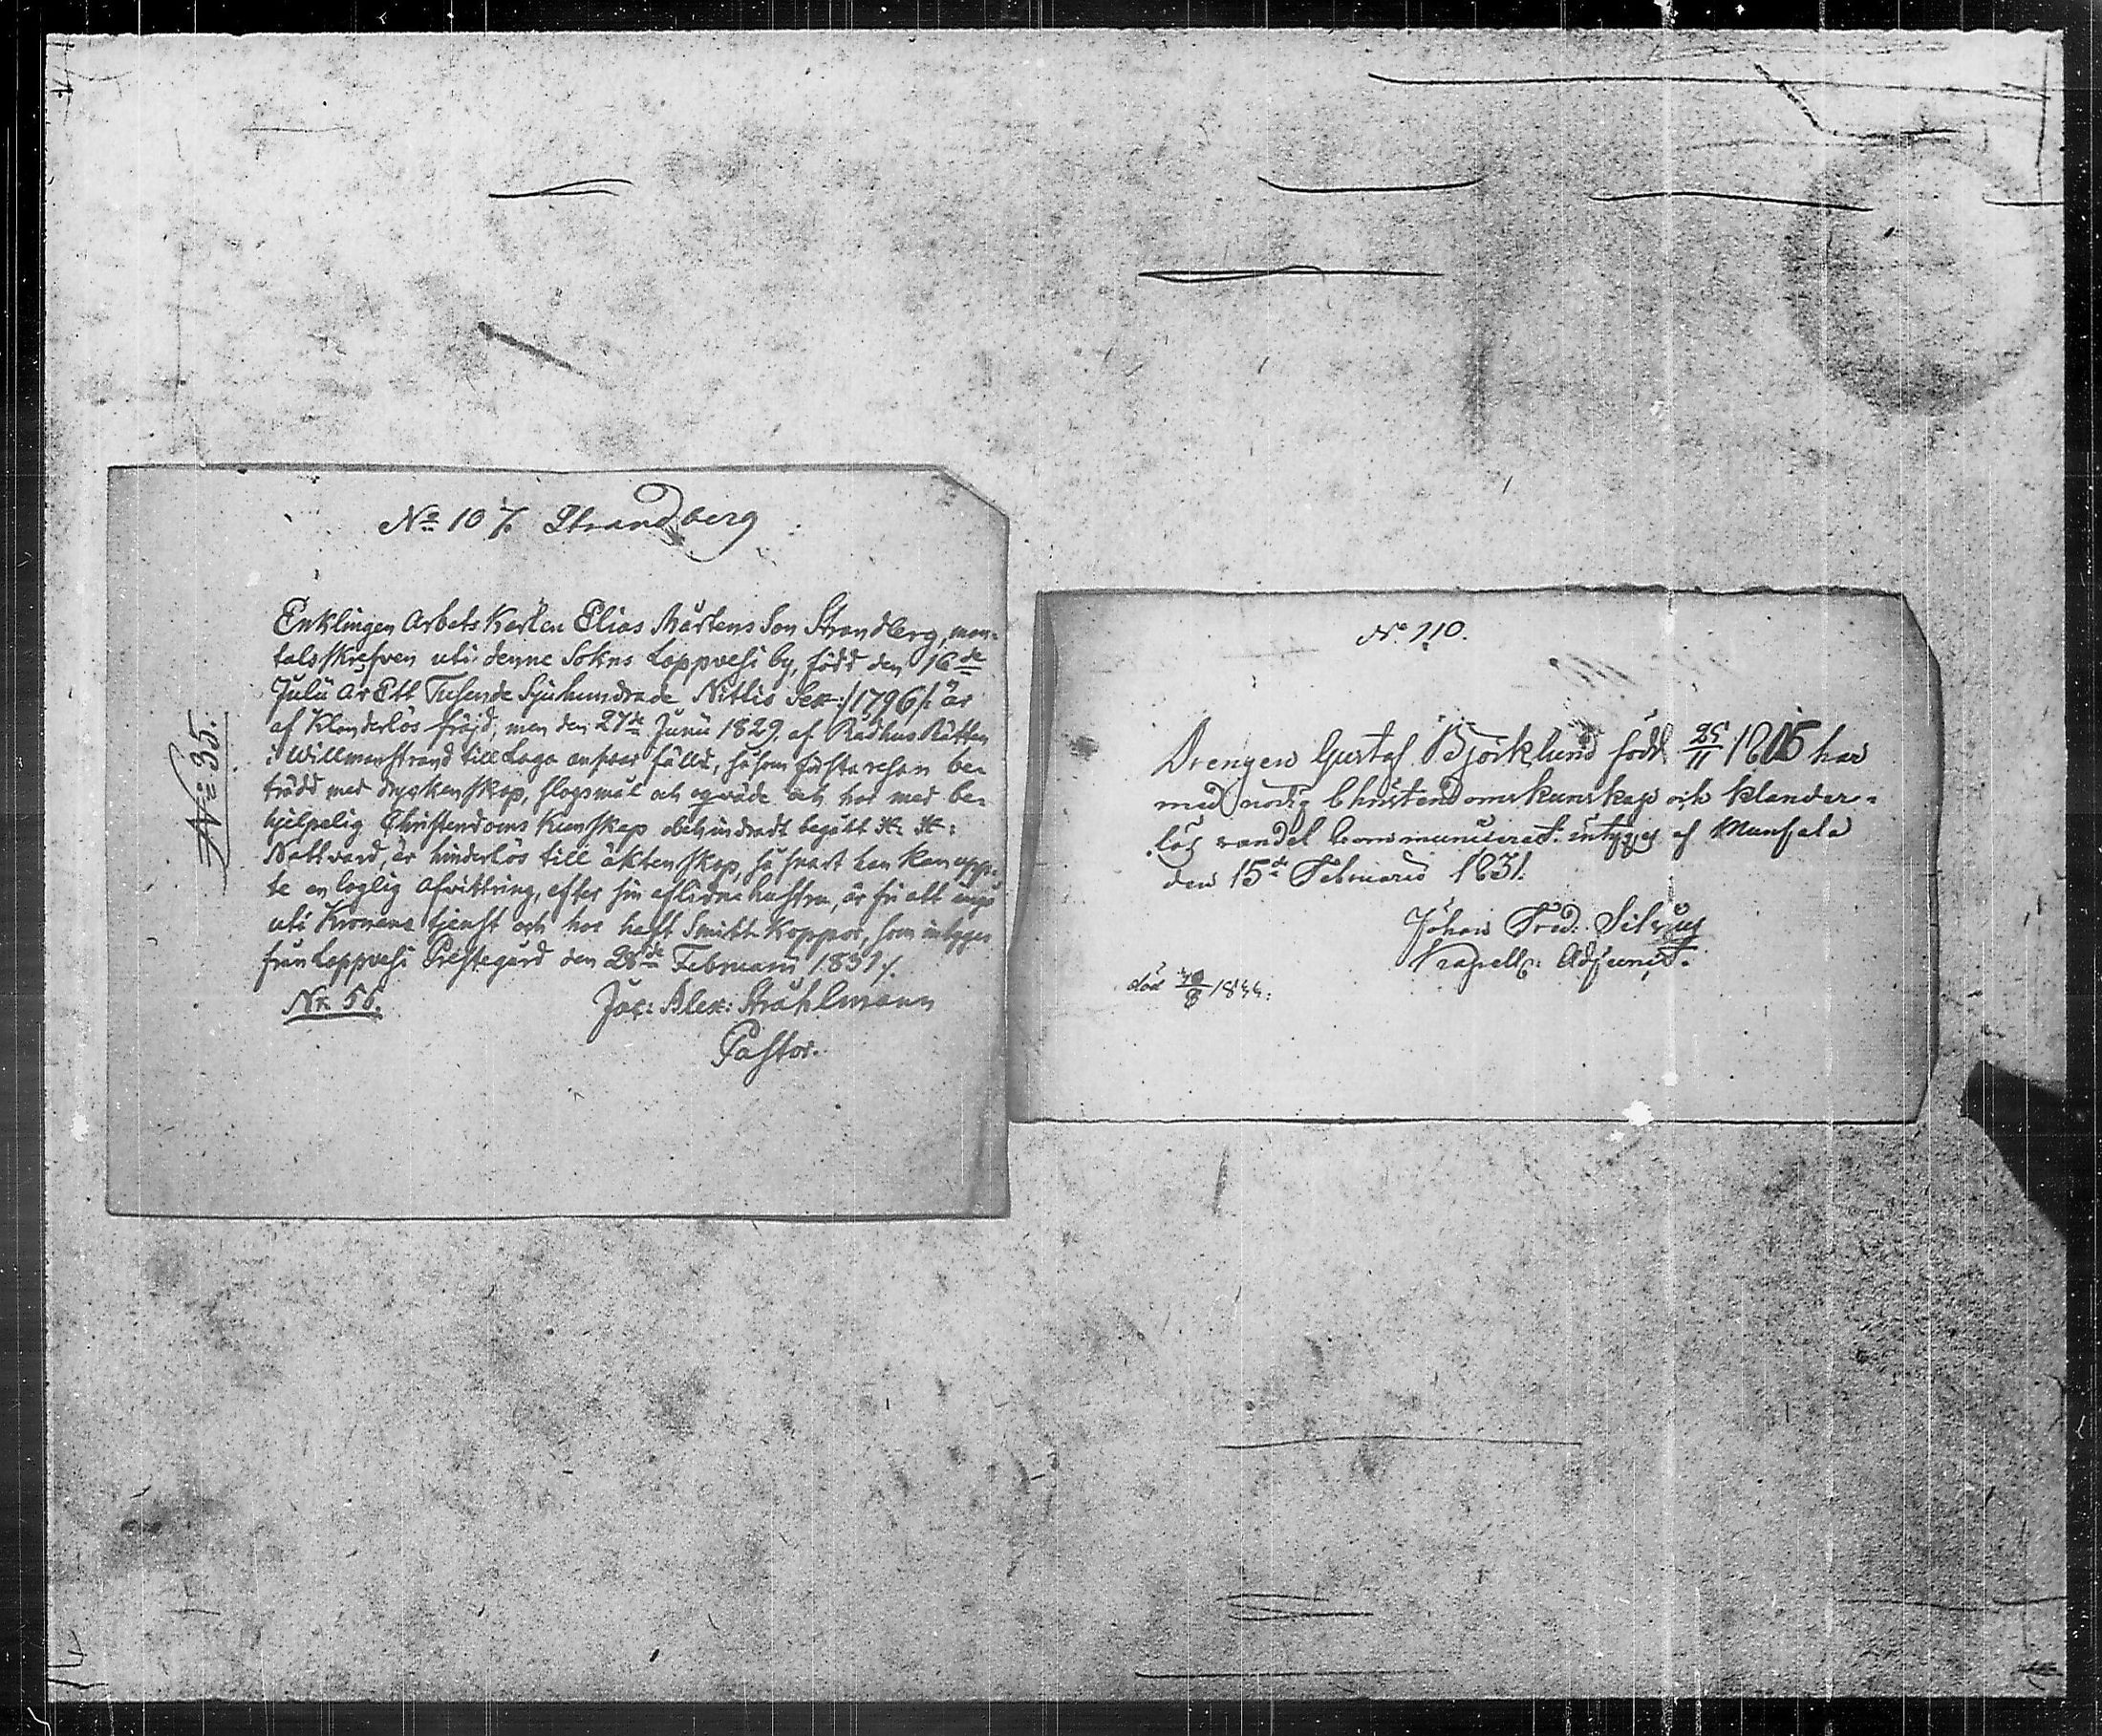 No 107. Strandberg
No 35.
Enklingen Arbets Karlen Elias Mårtens Son Strandberg, man-
talsskrefven uti denne Sokns Lappvesi by, född den 16de
Julii År Ett Tusende Sjuhundrade Nittio Sex :/1796/: är
af Klanderlös fräjd, men den 27de Junii 1829 af Rådhus Rätten
i Willmanstrand till Laga ansvar fälld, såsom första resan be-
trädd med dryckenskap, slagsmål och oqväde och har med be-
hjelpelig Christendoms Kunskap obehindradt begått H. H:
Nattvard, är hinderlös till äktenskap, så snart han kan uppte-
te en laglig afvittring, efter sin aflidna hustru, är fri att ingå
uti Kronans tjenst och har haft Smitt-Koppor, som intygas
från Lappvesi Prestegård den 28de Februarii 1831.
No 56.
Jac: Alex: Stråhlmann
Pastor.
No 110.
Drengen Gustaf Björklund född 25/11 1815 har
med nödig Christendomskunskap och klander-
lös vandel Communicerat. intygas af Munsala
den 15de Februarii 1831.
Johan Fred. Silvius
Kapells Adjunct.
död /8 1844.